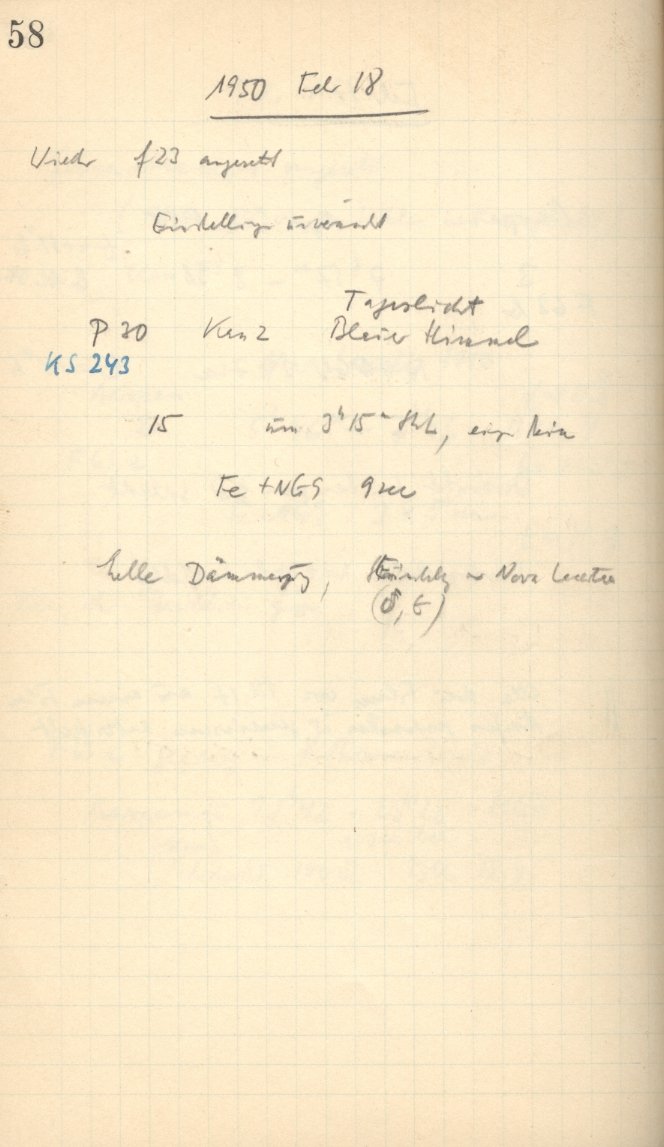 58
1950 Feb 18
Wieder f23 angesetzt
Einstellung unverändert
Tageslicht
P 30 Blauer Himmel
KS 243
15 um 3h 15m
Fe + NGS 9 sec
helle Dämmerung, Nova Lacertae
(δ, ε)